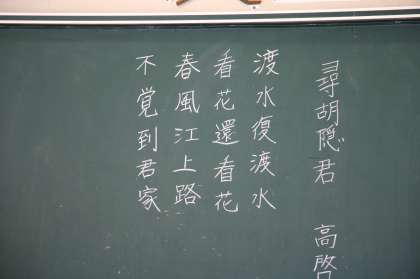 尋胡隠君 高啓
渡水復渡水
看花還看花
春風江上路
不覚到君家